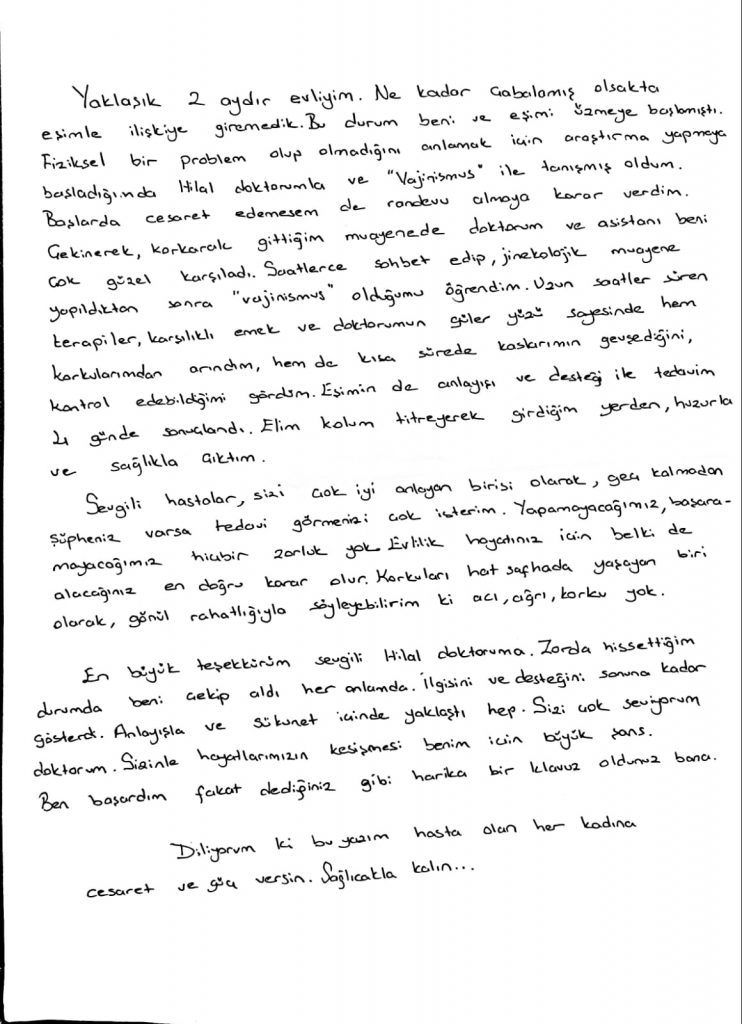 Yaklaşık 2 aydır evliyim. Ne kadar çabalamış olsakta
eşimle ilişkiye giremedik. Bu durum beni ve eşimi üzmeye başlamıştı.
Fiziksel bir problem olup olmadığını anlamak için araştırma yapmaya
başladığında Hilal doktorumla ve "Vajinismus" ile tanışmış oldum.
Başlarda cesaret edemesem de randevu almaya karar verdim.
Çekinerek, korkarak gittiğim muayenede doktorum ve asistanı beni
çok güzel karşıladı. Saatlerce sohbet edip, jinekolojik muayene
yapıldıktan sonra "vajinismus" olduğumu öğrendim. Uzun saatler süren
terapiler, karşılıklı emek ve doktorumun güler yüzü sayesinde hem
korkularımdan arındım, hem de kısa sürede kaslarımın gevşediğini,
kontrol edebildiğimi gördüm. Eşimin de anlayışı ve desteği ile tedavim
4 günde sonuçlandı. Elim kolum titreyerek girdiğim yerden, huzurla
ve sağlıkla çıktım.
Sevgili hastalar, sizi çok iyi anlayan birisi olarak, geç kalmadan
şüpheniz varsa tedavi görmenizi çok isterim. Yapamayacağımız, başara-
mayacağımız hiçbir zorluk yok. Evlilik hayatınız için belki de
alacağınız en doğru karar olur. Korkuları hat safhada yaşayan biri
olarak, gönül rahatlığıyla söyleyebilirim ki acı, ağrı, korku yok.
En büyük teşekkürüm sevgili Hilal doktoruma. Zorda hissettiğim
durumda beni çekip aldı her anlamda. İlgisini ve desteğini sonuna kadar
gösterdi. Anlayışla ve sükunet içinde yaklaştı hep. Sizi çok seviyorum
doktorum. Sizinle hayatlarımızın kesişmesi benim için büyük şans.
Ben başardım fakat dediğiniz gibi harika bir klavuz oldunuz bana.
Diliyorum ki bu yazım hasta olan her kadına
cesaret ve güç versin. Sağlıcakla kalın...